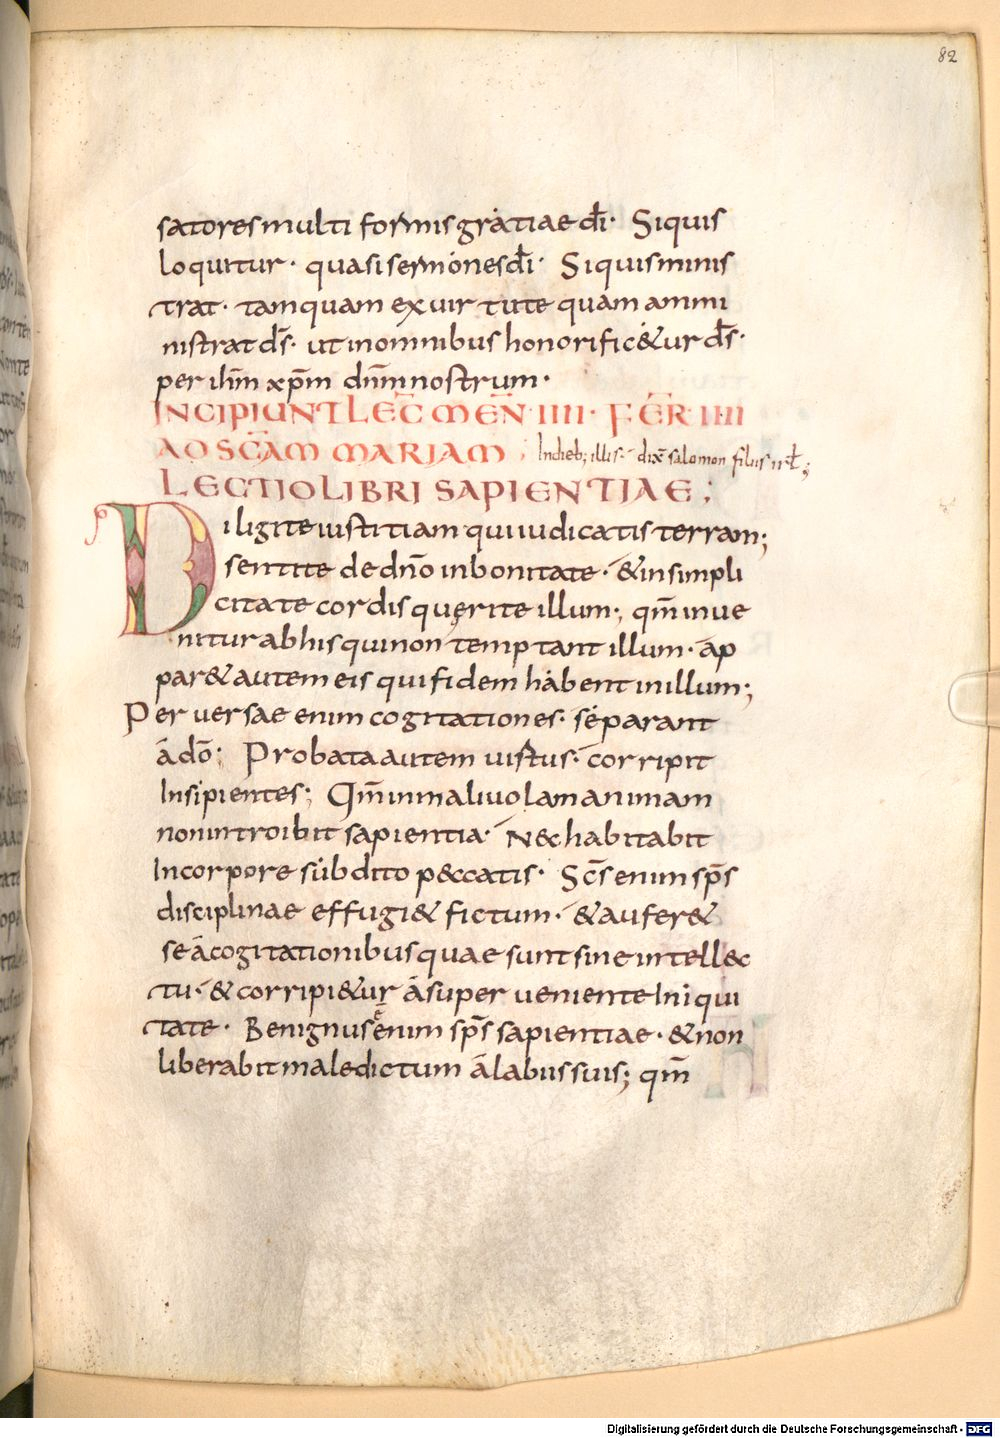 82
satores multi formis gratiae dī· Siquis
loquitur· quasi sermones dī· Siquis minis
trat· tamquam ex uirtute quam ammi
nistrat ds̄· ut in omnibus honorific&ur ds̄·
per ihm̄ xp̄m dnm̄ nostrum·
INCIPIUNT LEC̄ MEN̄ IIII· FER̄ IIII
AD SC̄AM MARIAM ; Indieb; illis· dix̄ salomon filius isrł;
LECTIO LIBRI SAPIENTIAE;
Diligite iustitiam qui iudicatis terram;
sentite de dn̄o in bonitate· & in simpli
citate cordis quęrite illum; qm̄ inue
nitur ab his qui non temptant illum· ap
par& autem eis qui fidem habent in illum;
Peruersae enim cogitationes· separant
a dō; Probata autem uistus· corripit
Insipientes; Qm̄ in maliuolam animam
non introibit sapientia· Nec habitabit
In corpore subdito peccatis· Scs̄ enim sps̄
disciplinae effugi& fictum· & aufer&
se a cogitationibus quae sunt sine intellec
tu· & corripi&ur a superueniente Iniqui
tate· Benignus enim sps̄ sapientiae· & non
liberabit maledictum a labiis suis; qm̄
Digitalisierung gefördert durch die Deutsche Forschungsgemeinschaft - DFG